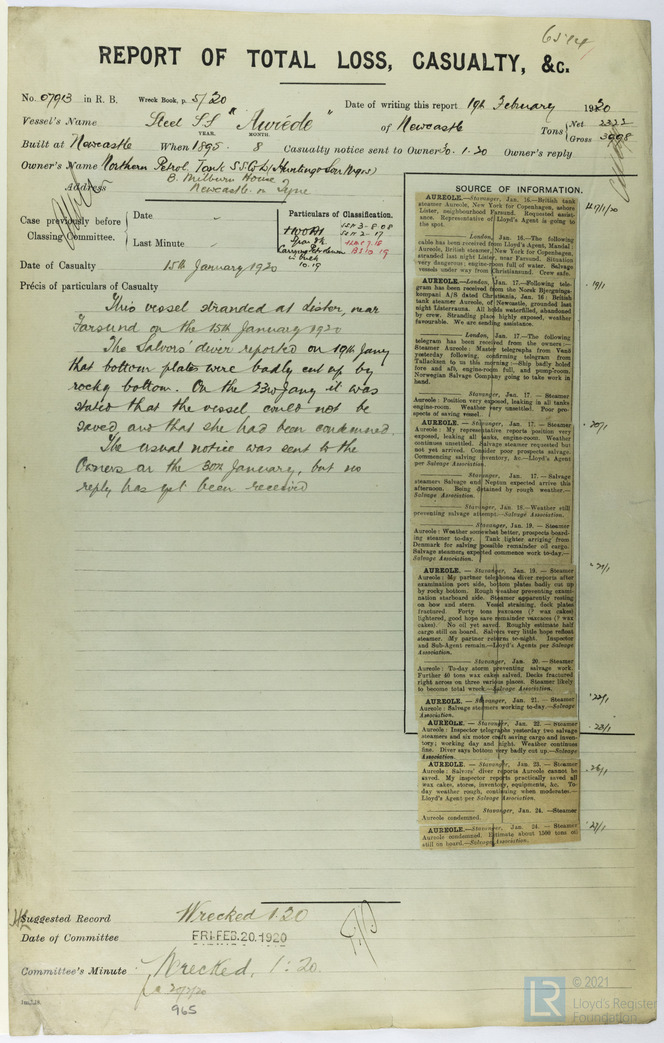 REPORT OF TOTAL LOSS, CASUALTY, &c.
No. 07913 in R. B. Wreck Book, p. 5/20 Date of writing this report 19th February 1920
Vessel's Name Steel S.S. "Aureole" of Newcastle Tons Net 2322
YEAR. MONTH. Gross 3998
Built at Newcastle When 1895 . 8 Casualty notice sent to Owner 30.1.20 Owner's reply
Owner's Name Northern Petrol. Tank S.S. Co Ld (Hunting & Son Mgrs)
Address B. Milburn House
Newcastle on Tyne
Case previously before Classing Committee.
Date "
Last Minute "
Particulars of Classification.
+100A1
Spar Dk
Carrying Petroleum
in Bulk
10.19
Date of Casualty 15th January 1920
Précis of particulars of Casualty
This vessel stranded at Lister, near
Farsund on the 15th January 1920
The Salvors' diver reported on 19th Jany
that bottom plates were badly cut up by
rocky bottom. On the 23rd Jany it was
stated that the vessel could not be
saved and that she had been condemned
The usual notice was sent to the
Owners on the 30th January, but no
reply has yet been received
SOURCE OF INFORMATION.
AUREOLE.—Stavanger, Jan. 16.—British tank
steamer Aureole, New York for Copenhagen, ashore
Lister, neighbourhood Farsund. Requested assist-
ance. Representative of Lloyd's Agent is going to
the spot.
London, Jan. 16.—The following
cable has been received from Lloyd's Agent, Mandal:
Aureole, British steamer, New York for Copenhagen,
stranded last night Lister, near Farsund. Situation
very dangerous; engine-room full of water. Salvage
vessels under way from Christiansund. Crew safe.
17/1/20
AUREOLE.—London, Jan. 17.—Following tele-
gram has been received from the Norsk Bjergnings-
kompani A/S dated Christiania, Jan. 16: British
tank steamer Aureole, of Newcastle, grounded last
night Listerrauna. All holds waterfilled, abandoned
by crew. Stranding place highly exposed, weather
favourable. We are sending assistance.
19/1
London, Jan. 17.—The following
telegram has been received from the owners:—
Steamer Aureole: Master telegraphs from Vansö
yesterday following, confirming telegram from
Tallacksen to us this morning:—Ship badly holed
fore and aft, engine-room full, and pump-room.
Norwegian Salvage Company going to take work in
hand.
Stavanger, Jan. 17.—Steamer
Aureole: Position very exposed, leaking in all tanks
engine-room. Weather very unsettled. Poor pros-
pects of saving vessel.
AUREOLE.—Stavanger, Jan. 17.—Steamer
Aureole: My representative reports position very
exposed, leaking all tanks, engine-room. Weather
continues unsettled. Salvage steamer requested but
not yet arrived. Consider poor prospects salvage.
Commencing salving inventory, &c.—Lloyd's Agent
per Salvage Association.
20/1
Stavanger, Jan. 17.—Salvage
steamers Salvage and Neptun expected arrive this
afternoon. Being detained by rough weather.—
Salvage Association.
Stavanger, Jan. 18.—Weather still
preventing salvage attempt.—Salvage Association.
Stavanger, Jan. 19.—Steamer
Aureole: Weather somewhat better, prospects board-
ing steamer to-day. Tank lighter arriving from
Denmark for salving possible remainder oil cargo.
Salvage steamers expected commence work to-day.—
Salvage Association.
AUREOLE.—Stavanger, Jan. 19.—Steamer
Aureole: My partner telephones diver reports after
examination port side, bottom plates badly cut up
by rocky bottom. Rough weather preventing exami-
nation starboard side. Steamer apparently resting
on bow and stern. Vessel straining, deck plates
fractured. Forty tons vaxcaces (? wax cakes)
lightered, good hope save remainder vaxcaces (? wax
cakes). No oil yet saved. Roughly estimate half
cargo still on board. Salvors very little hope refloat
steamer. My partner returns to-night. Inspector
and Sub-Agent remain.—Lloyd's Agents per Salvage
Association.
21/1
Stavanger, Jan. 20.—Steamer
Aureole: To-day storm preventing salvage work.
Further 40 tons wax cakes salved. Decks fractured
right across on three various places. Steamer likely
to become total wreck.—Salvage Association.
AUREOLE.—Stavanger, Jan. 21.—Steamer
Aureole: Salvage steamers working to-day.—Salvage
Association.
22/1
AUREOLE.—Stavanger, Jan. 22.—Steamer
Aureole: Inspector telegraphs yesterday two salvage
steamers and six motor craft saving cargo and inven-
tory; working day and night. Weather continues
fine. Diver says bottom very badly cut up.—Salvage
Association.
23/1
AUREOLE.—Stavanger, Jan. 23.—Steamer
Aureole: Salvors' diver reports Aureole cannot be
saved. My inspector reports practically saved all
wax cakes, stores, inventory, equipments, &c. To-
day weather rough, continuing when moderates.—
Lloyd's Agent per Salvage Association.
26/1
Stavanger, Jan. 24.—Steamer
Aureole condemned.
AUREOLE.—Stavanger, Jan. 24.—Steamer
Aureole condemned. Estimate about 1500 tons oil
still on board.—Salvage Association.
27/1
Suggested Record Wrecked 1.20
Date of Committee FRI. FEB. 20. 1920
Committee's Minute Wrecked, 1:20.
965
© 2021
LR Lloyd's Register
Foundation